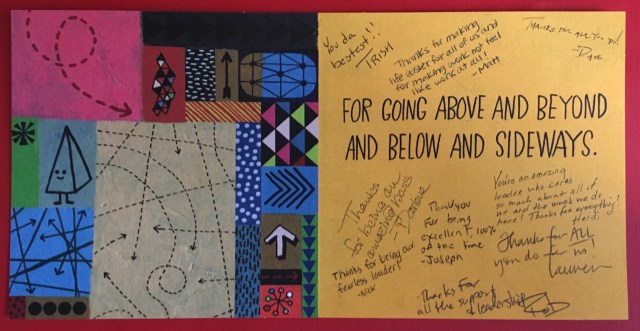 You da
bestest!!
TRISH
Thanks for making
life easier for all of us and
for making work not feel
like work at all!
-Matt
THANKS FOR ALL YOU DO!
FOR GOING ABOVE AND BEYOND
AND BELOW AND SIDEWAYS.
Thanks
for being our
boss
Thanks for being our
fearless leader!
-Nick
Thank you
for being
excellent, 100%
of the time
-Joseph
You're an amazing
leader who cares
so much about all of
us and the work we do
here! Thanks for everything!
Heidi
Thanks for ALL
you do for us!
Lauren
Thanks For
all the support
& leadership